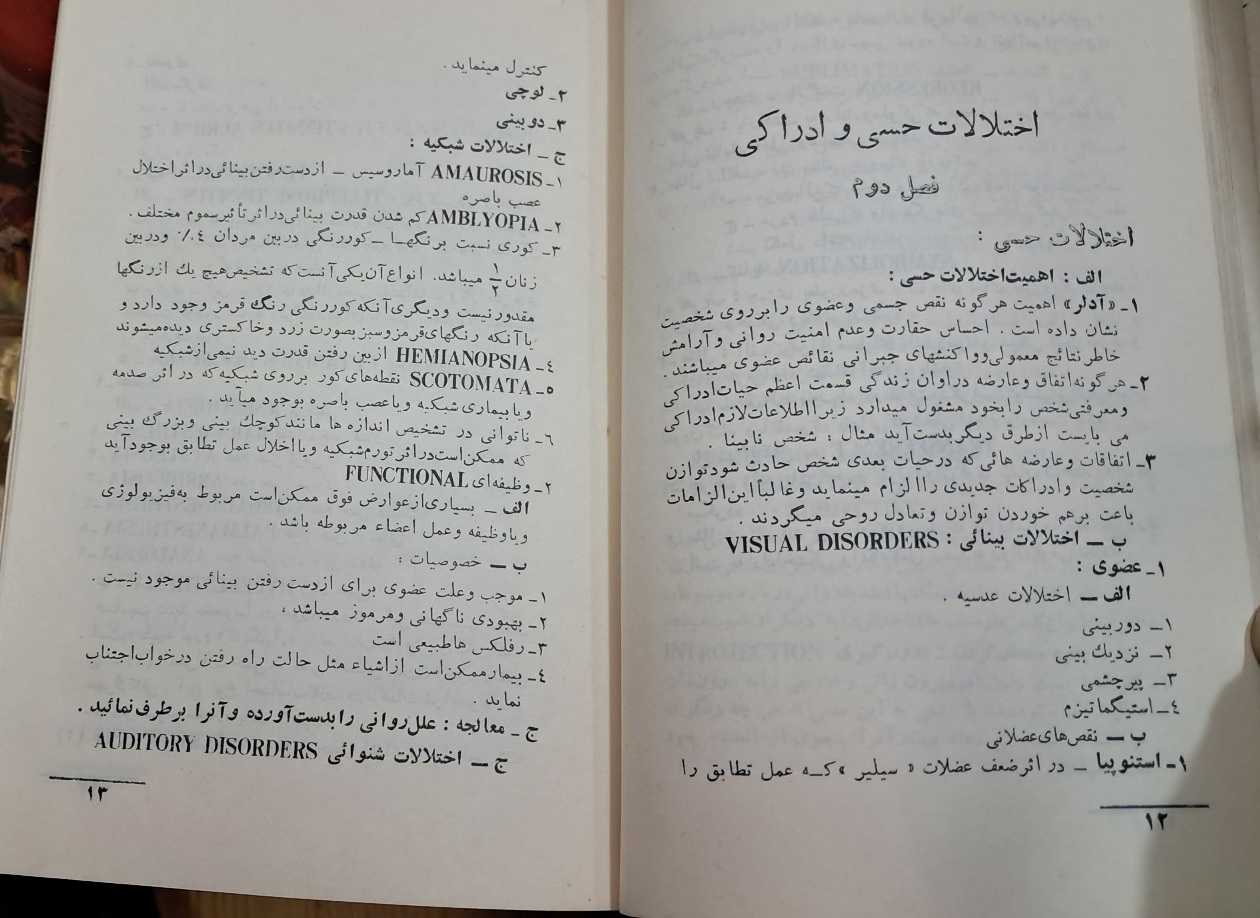 اختلالات حسی و ادراکی
فصل دوم
اختلالات حسی :
الف : اهمیت اختلالات حسی :
۱ـ «آدلر» اهمیت هر گونه نقص جسمی وعضوی را برروی شخصیت
نشان داده است . احساس حقارت وعدم امنیت روانی و آرامش
خاطر نتائج معمولی وواکنشهای جبرانی نقائص عضوی میباشند .
۲ـ هر گونه اتفاق وعارضه دراوان زندگی قسمت اعظم حیات ادراکی
ومعرفتی شخص را بخود مشغول میدارد زیرا اطلاعات لازم ادراکی
می بایست ازطرق دیگر بدست آید مثال : شخص نابینا .
۳ـ اتفاقات وعارضه هائی که درحیات بعدی شخص حادث شود توازن
شخصیت وادراکات جدیدی را الزام مینماید وغالباً این الزامات
باعث برهم خوردن توازن وتعادل روحی میگردند .
ب ـ اختلالات بینائی : VISUAL DISORDERS
۱ـ عضوی :
الف ـ اختلالات عدسیه .
۱ـ دوربینی
۲ـ نزدیك بینی
۳ـ پیرچشمی
٤ـ استیگماتیزم
ب ـ نقص‌های عضلانی
۱ـ استنوپیا ـ در اثر ضعف عضلات « سیلیر » که عمل تطابق را
۱۲
کنترل مینماید .
۲ـ لوچی
۳ـ دوبینی
ج ـ اختلالات شبکیه :
۱ـ AMAUROSIS آماروسیس ـ ازدست رفتن بینائی در اثر اختلال
عصب باصره
۲ـ AMBLYOPIA کم شدن قدرت بینائی در اثر تأثیر سموم مختلف .
۳ـ کوری نسبت برنگهـا ـ کوررنگی دربین مردان ٤٪ ودربین
زنان ۱/۲ میباشد. انواع آن یکی آنست که تشخیص هیچ یك ازرنگها
مقدور نیست ودیگری آنکه کوررنگی رنگ قرمز وجود دارد و
یا آنکه رنگهای قرمز وسبز بصورت زرد وخاکستری دیده میشوند
٤ـ HEMIANOPSIA ازبین رفتن قدرت دید نیمی از شبکیه
٥ـ SCOTOMATA نقطه‌های کور برروی شبکیه که در اثر صدمه
ویا بیماری شبکیه ویا عصب باصره بوجود میآید .
٦ـ ناتوانی در تشخیص اندازه ها مانند کوچك بینی وبزرگ بینی
که ممکن است در اثر تورم شبکیه ویا اخلال عمل تطابق بوجود آید
۲ـ وظیفه‌ای FUNCTIONAL
الف ـ بسیاری از عوارض فوق ممکن است مربوط به فیزیولوژی
ویا وظیفه وعمل اعضاء مربوطه باشد .
ب ـ خصوصیات :
۱ـ موجب وعلت عضوی برای ازدست رفتن بینائی موجود نیست .
۲ـ بهبودی ناگهانی ومرموز میباشد ،
۳ـ رفلکس ها طبیعی است
٤ـ بیمار ممکن است ازاشیاء مثل حالت راه رفتن درخواب اجتناب
نماید .
ج ـ معالجه : علل روانی را بدست آورده وآنرا برطرف نمائید .
ج ـ اختلالات شنوائی AUDITORY DISORDERS
۱۳